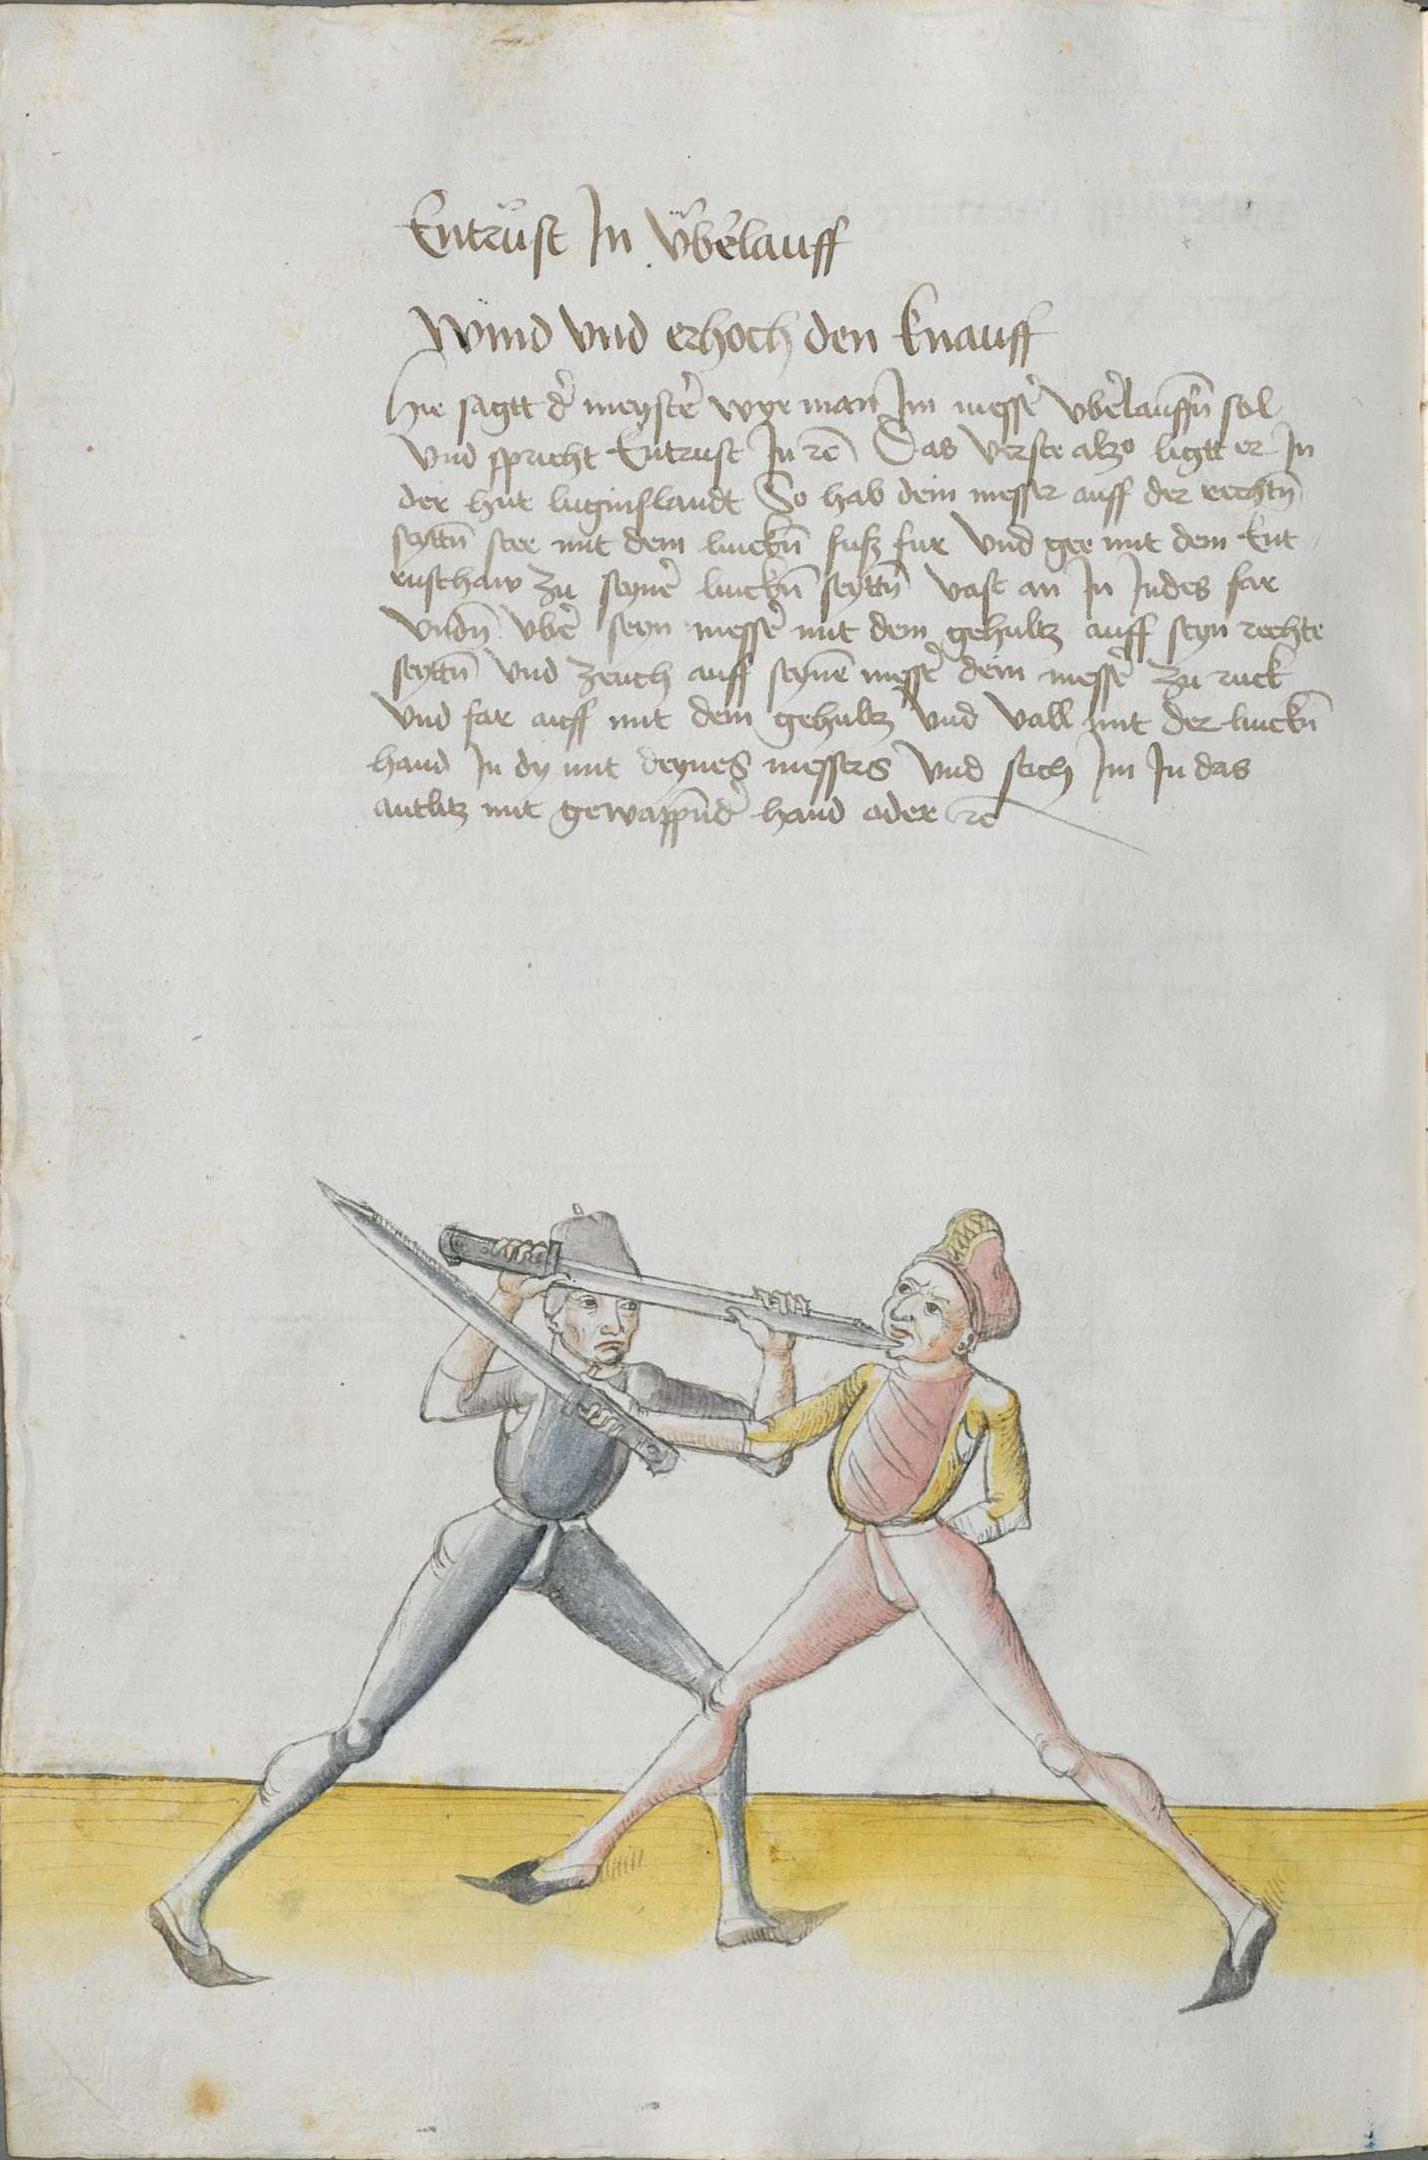 Entrüst In v̈berlauff
Wind vnd erhoch den knauff
Hie sagtt d̓ meyster̓ wye man Im messer̓ vber̓lauffn̄ sol
vnd spricht Entrust In rc̄ Das verste alzo ligtt er In
der hut luginslandt So hab dein messer auff der rechtn̄
seyttn̄ stee mit dem linckn̄ fusz fur vnd gee mit dem Ent„
rusthaw zu seyner̓ linckn̄ seyttn̄ vast an In Indes far
vndn̄ vber̓ seyn messer̓ mit dem gehultz auff seyn rechte
seyttn̄ vnd zeuch auff seynē messer̓ dein messer̓ zu ruck
vnd far auff mit dem gehultz vnd vall mit der linckn̄
hand In dy mit deynes messers vnd stich Im In das
antlitz mit gewappn̄d̓ hand oder rc̄